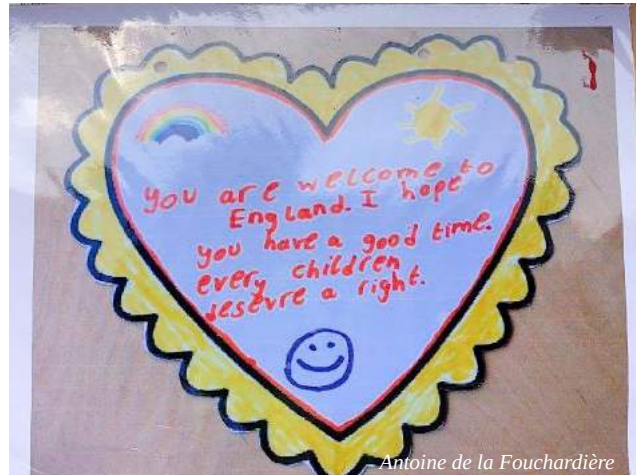 you are welcome to
England. I hope
you have a good time.
every children
desevre a right.
Antoine de la Fouchardière